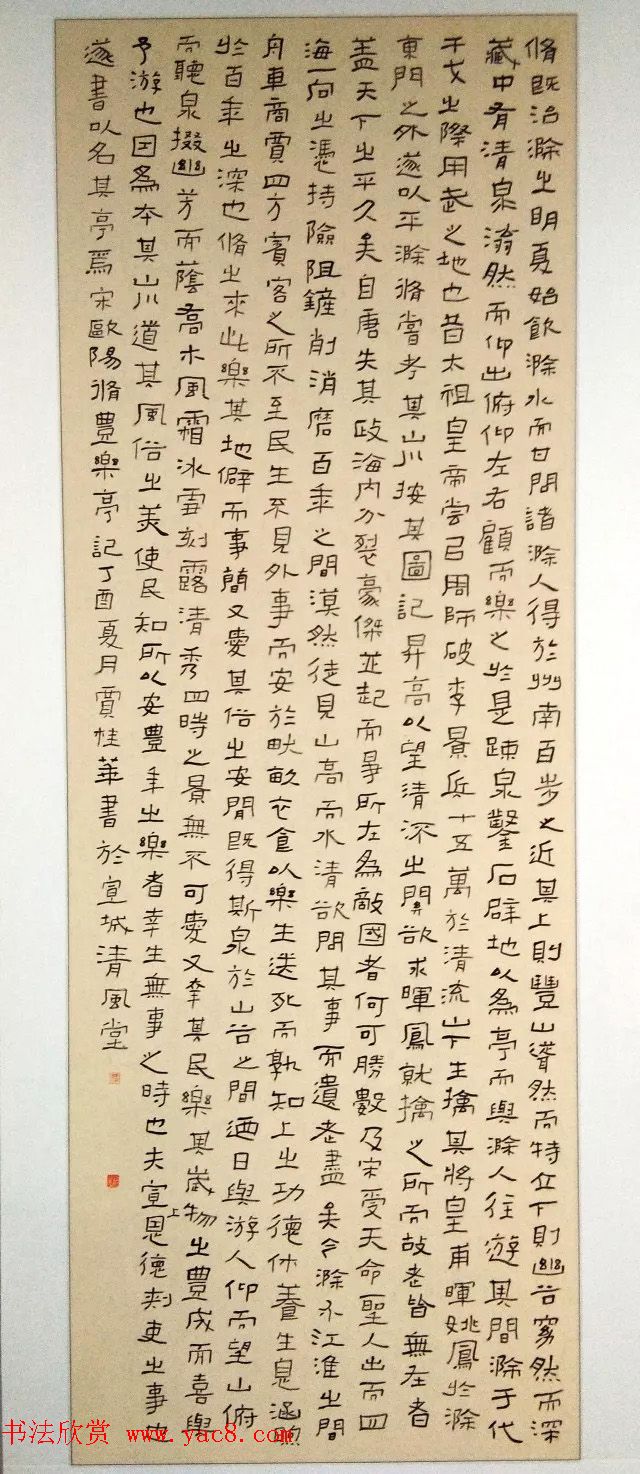 脩既治滁之明夏始飲滁水而甘問諸滁人得於州南百步之近其上則豐山聳然而特立下則幽谷窈然而深
藏中有清泉滃然而仰出俯仰左右顧而樂之於是疏泉鑿石辟地以為亭而與滁人往遊其間滁于五代
干戈之際用武之地也昔太祖皇帝嘗以周師破李景兵十五萬於清流山下生擒其將皇甫暉姚鳳於滁
東門之外遂以平滁脩嘗考其山川按其圖記昇高以望清流之關欲求暉鳳就擒之所而故老皆無在者
蓋天下之平久矣自唐失其政海內分裂豪傑並起而爭所在為敵國者何可勝數及宋受天命聖人出而四
海一向之憑恃險阻鏟削消磨百年之間漠然徒見山高而水清欲問其事而遺老盡矣今滁介江淮之間
舟車商賈四方賓客之所不至民生不見外事而安於畎畝衣食以樂生送死而孰知上之功德休養生息涵煦
於百年之深也脩之來此樂其地僻而事簡又愛其俗之安閒既得斯泉於山谷之間迺日與游人仰而望山俯
而聽泉掇幽芳而蔭高木風霜冰雪刻露清秀四時之景無不可愛又幸其民樂其歲物之豐成而喜與
予游也因為本其山川道其風俗之美使民知所以安豐年之樂者幸生無事之時也夫宣上恩德刺史之事也
遂書以名其亭焉宋歐陽脩豐樂亭記丁酉夏月賞桂華書於宣城清風堂
书法欣赏 www.yac8.com